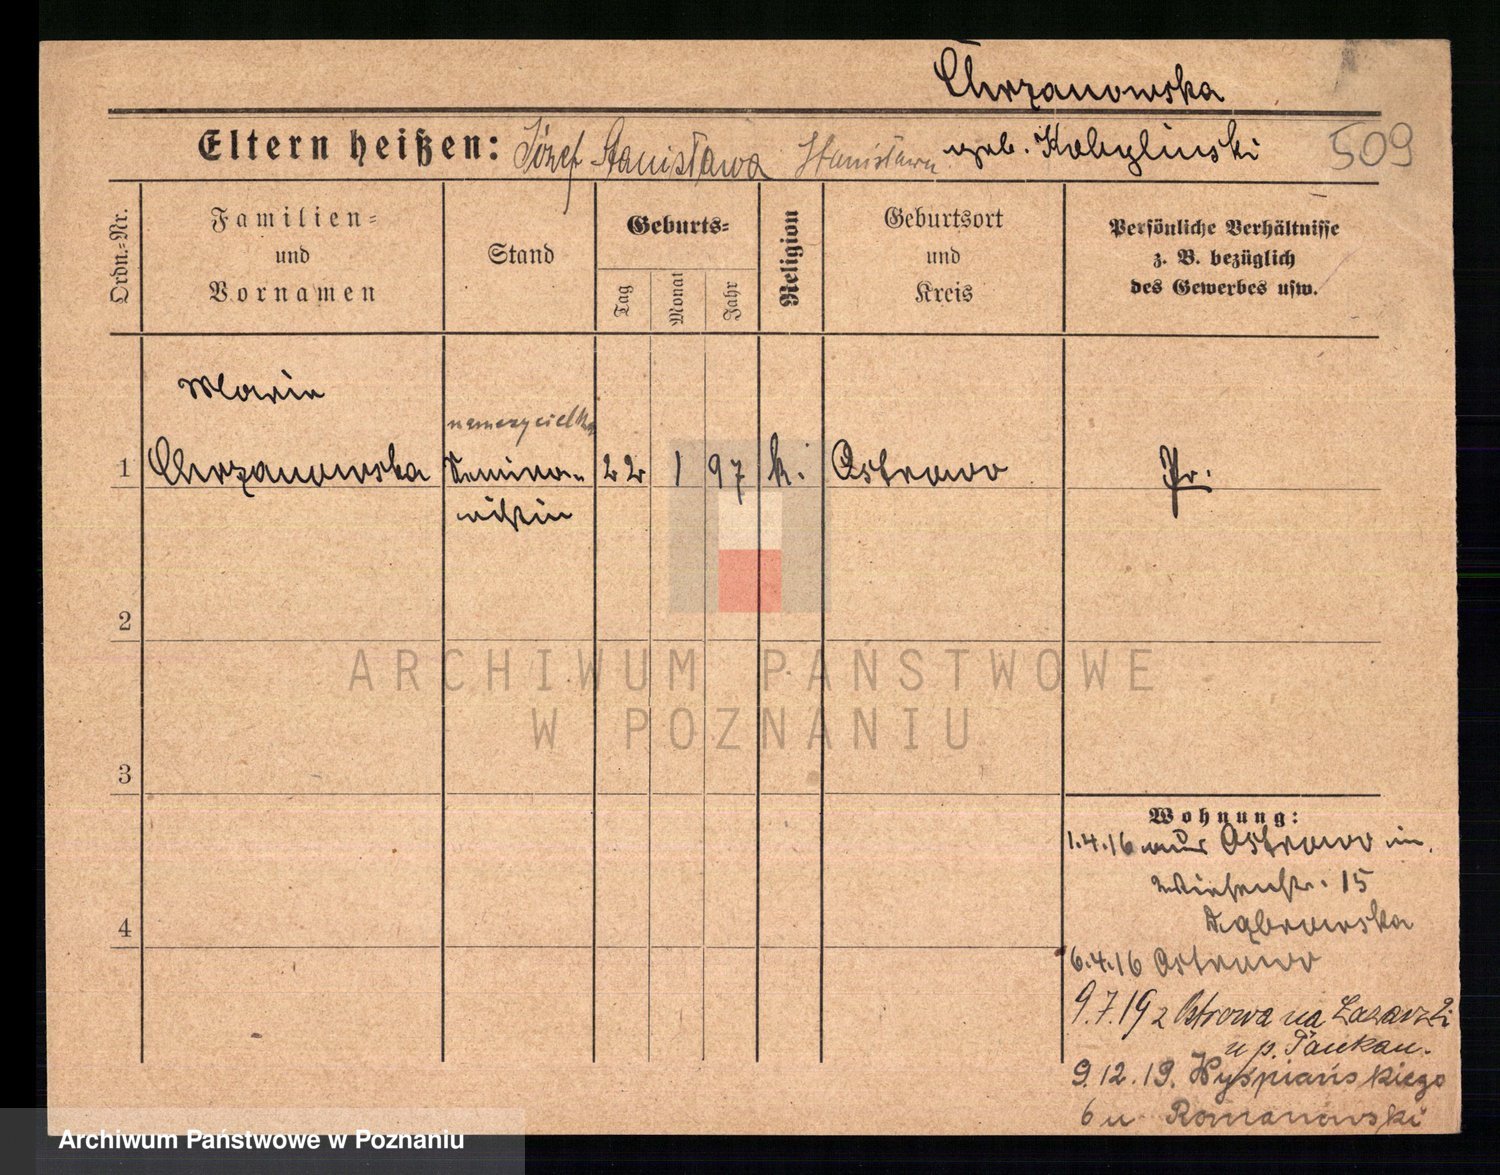 Chrzanowska
Eltern heißen: Józef Stanisława Stanisława geb. Kobylinski 509
Ordn.=Nr.
Familien=
und
Vornamen
Stand
Geburts=
Tag
Monat
Jahr
Religion
Geburtsort
und
Kreis
Persönliche Verhältnisse
z. B. bezüglich
des Gewerbes usw.
Maria
nauczycielka
1 Chrzanowska Semina- 22 1 97 k. Ostrowo Pr.
ristin
2
ARCHIWUM PAŃSTWOWE
W POZNANIU
3
Wohnung:
1.4.16 aus Ostrowo in
Wiesenstr. 15
Dąbrowska
4
6.4.16 Ostrowo
9.7.19 z Ostrowa na
u p.
9.12.19. Wyśpiańskiego
6 u Romanowski
Archiwum Państwowe w Poznaniu